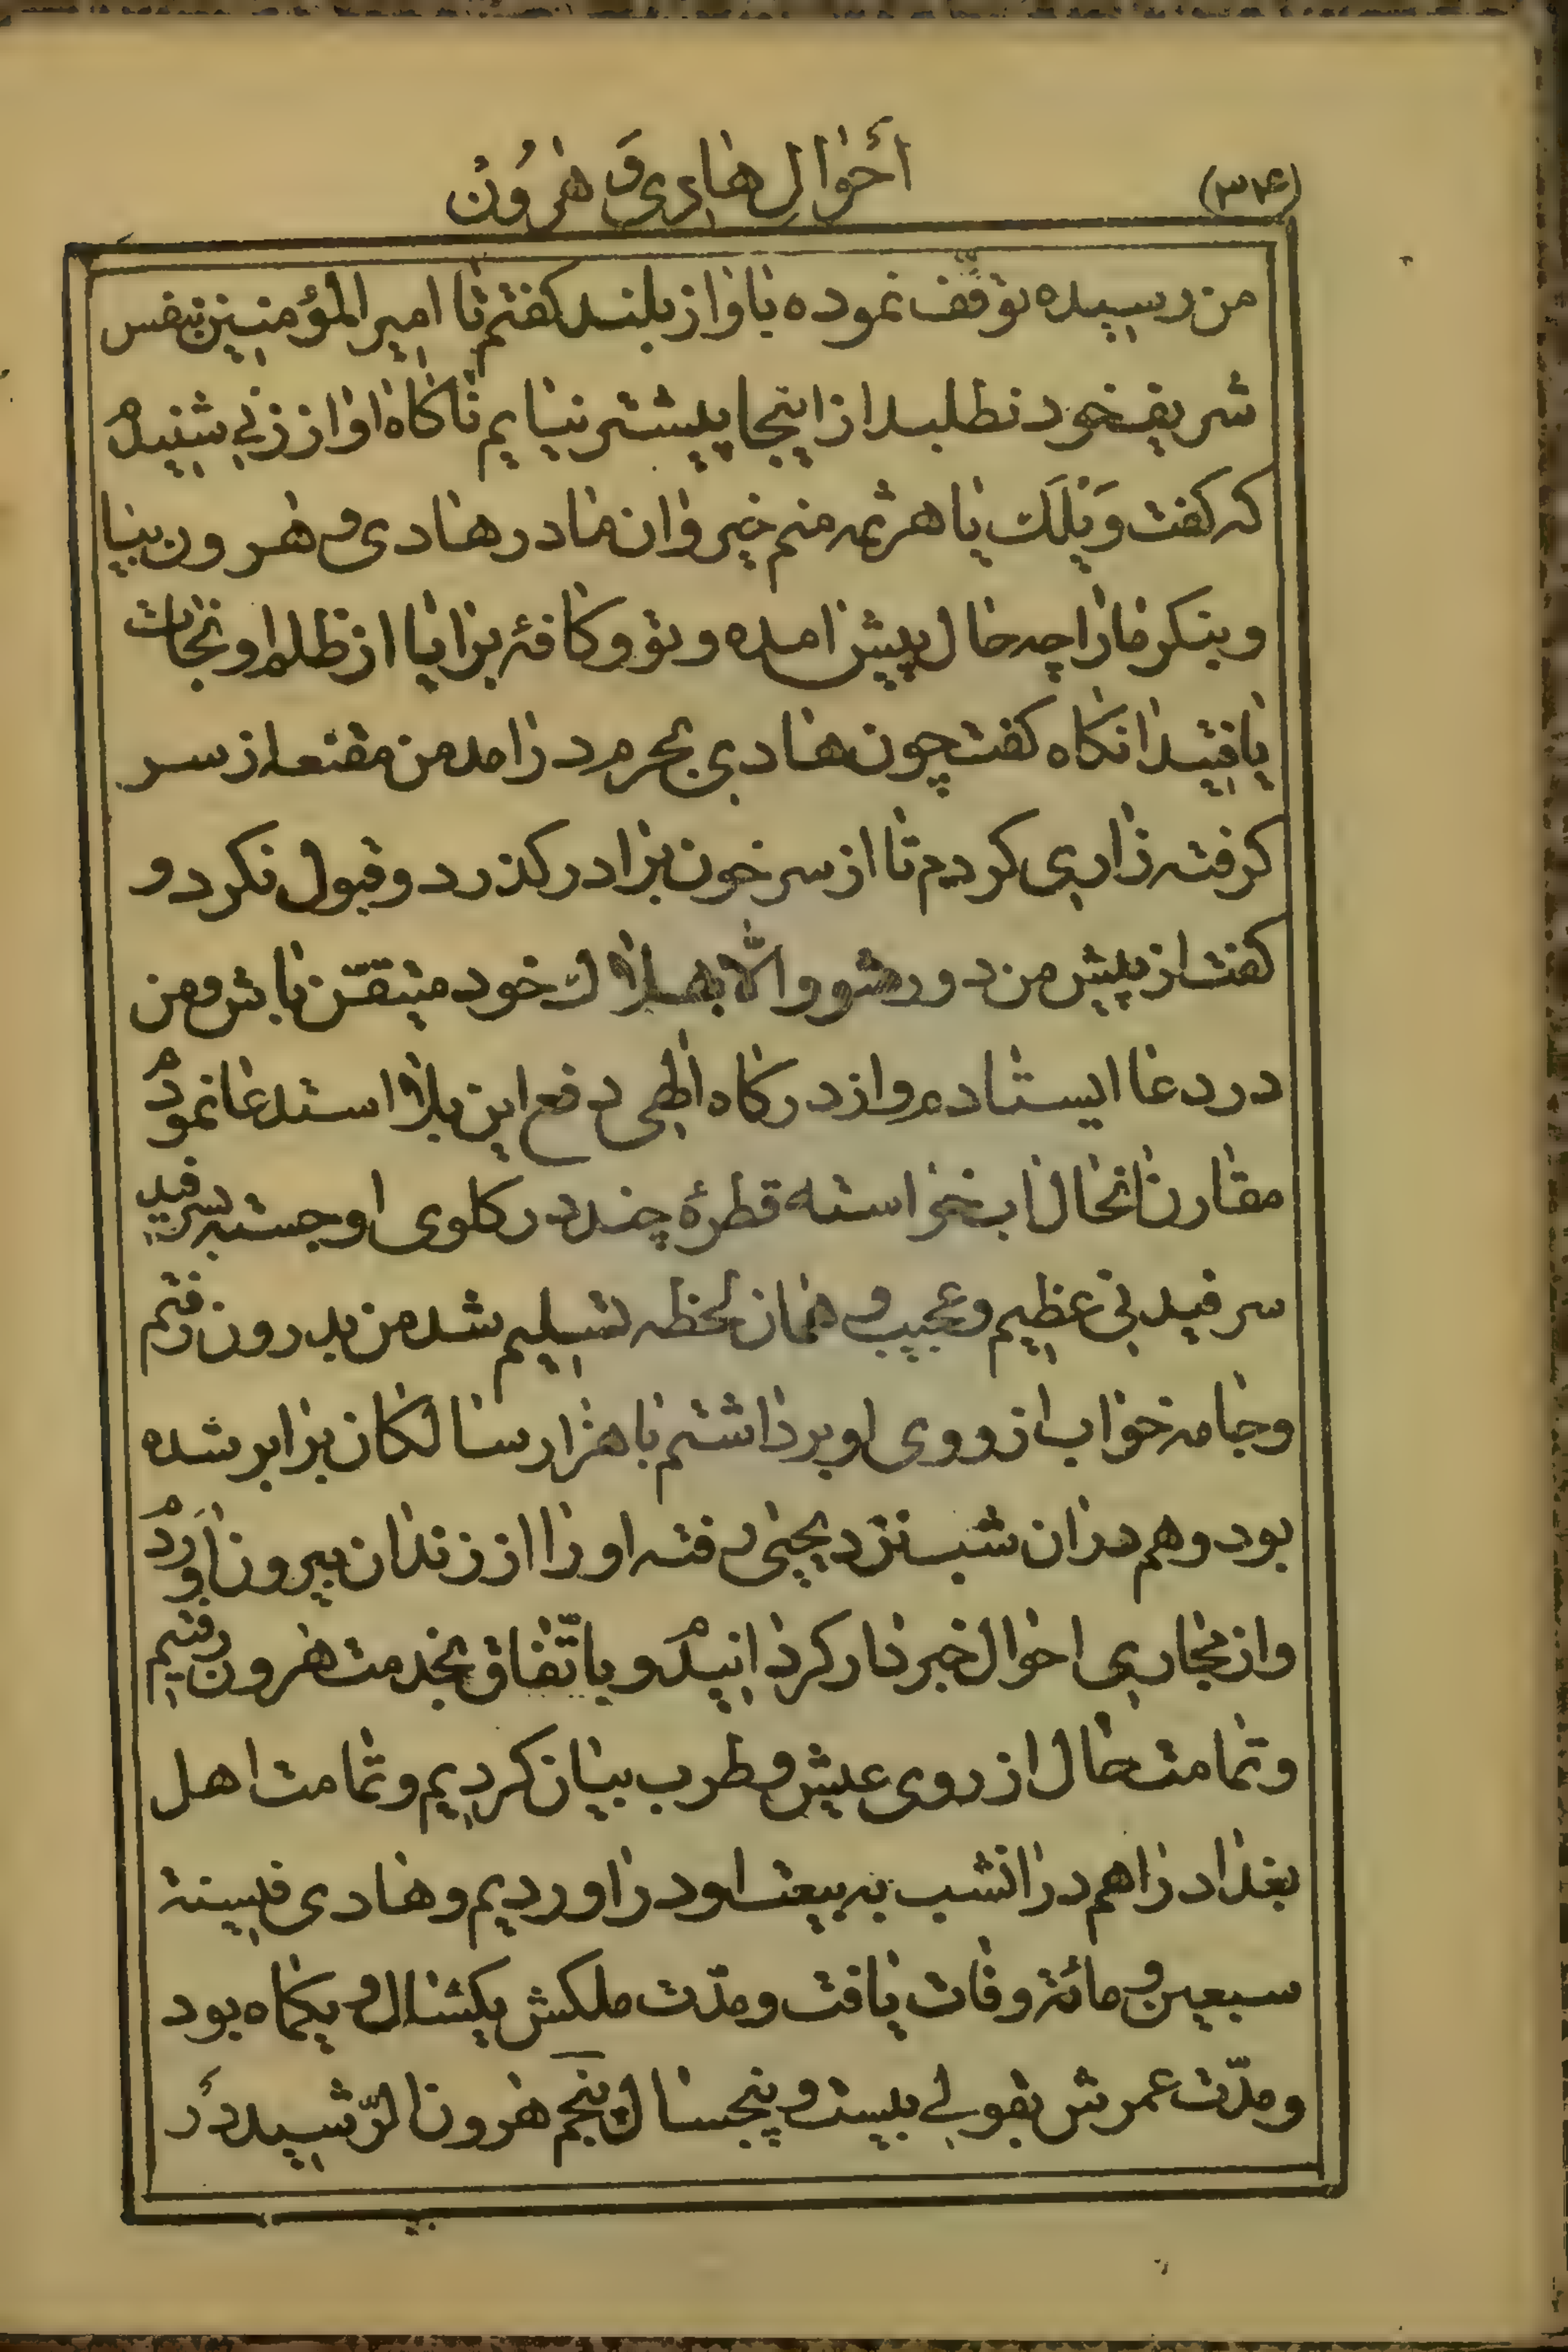 (۳۴)
أحوال هادی و هرون
من رسیده توقّف نموده باواز بلند کفتم تا امیر المؤمنین بنفس
شریف خود نطلبد از اینجا پیشتر نیایم ناکاه اواز زنی شنیدم
که کفت وَیلَك یا هرثمه منم خیزوان مادر هادی و هرون بیا
و بنکر مارا چه حال پیش امده و تو و کافۀ برایا از ظلم او نجات
یافتید انکاه کفت چون هادی بحرم درامد من مقنعه از سر
کرفته زاری کردم تا از سر خون برادر کذرد و قبول نکرد و
کفت از پیش من دور شو والّا بهلاك خود متیقّن باش و من
در دعا ایستادم و از درکاه الهی دفع این بلا استدعا نمودم
مقارن انحال اب خواسته قطرۀ چند در کلوی او جسته بسرفید
سرفیدنی عظیم و عجیب و همان لحظه تسلیم شد من بدرون رفتم
و جامه خواب از روی او برداشتم با هزار سالکان برابر شده
بود و هم دران شب نزد یحیی رفته او را از زندان بیرون اوردم
و از مجاری احوال خبردار کردانیدم و باتّفاق بخدمت هرون رفتیم
و تمامت حال از روی عیش و طرب بیان کردیم و تمامت اهل
بغداد را هم در انشب به بیعت او در اوردیم و هادی فی سنة
سبعین و مائة وفات یافت و مدّت ملکش یکسال و یکماه بود
و مدّت عمرش بقولی بیست و پنجسال پنجم هرون الرّشید در